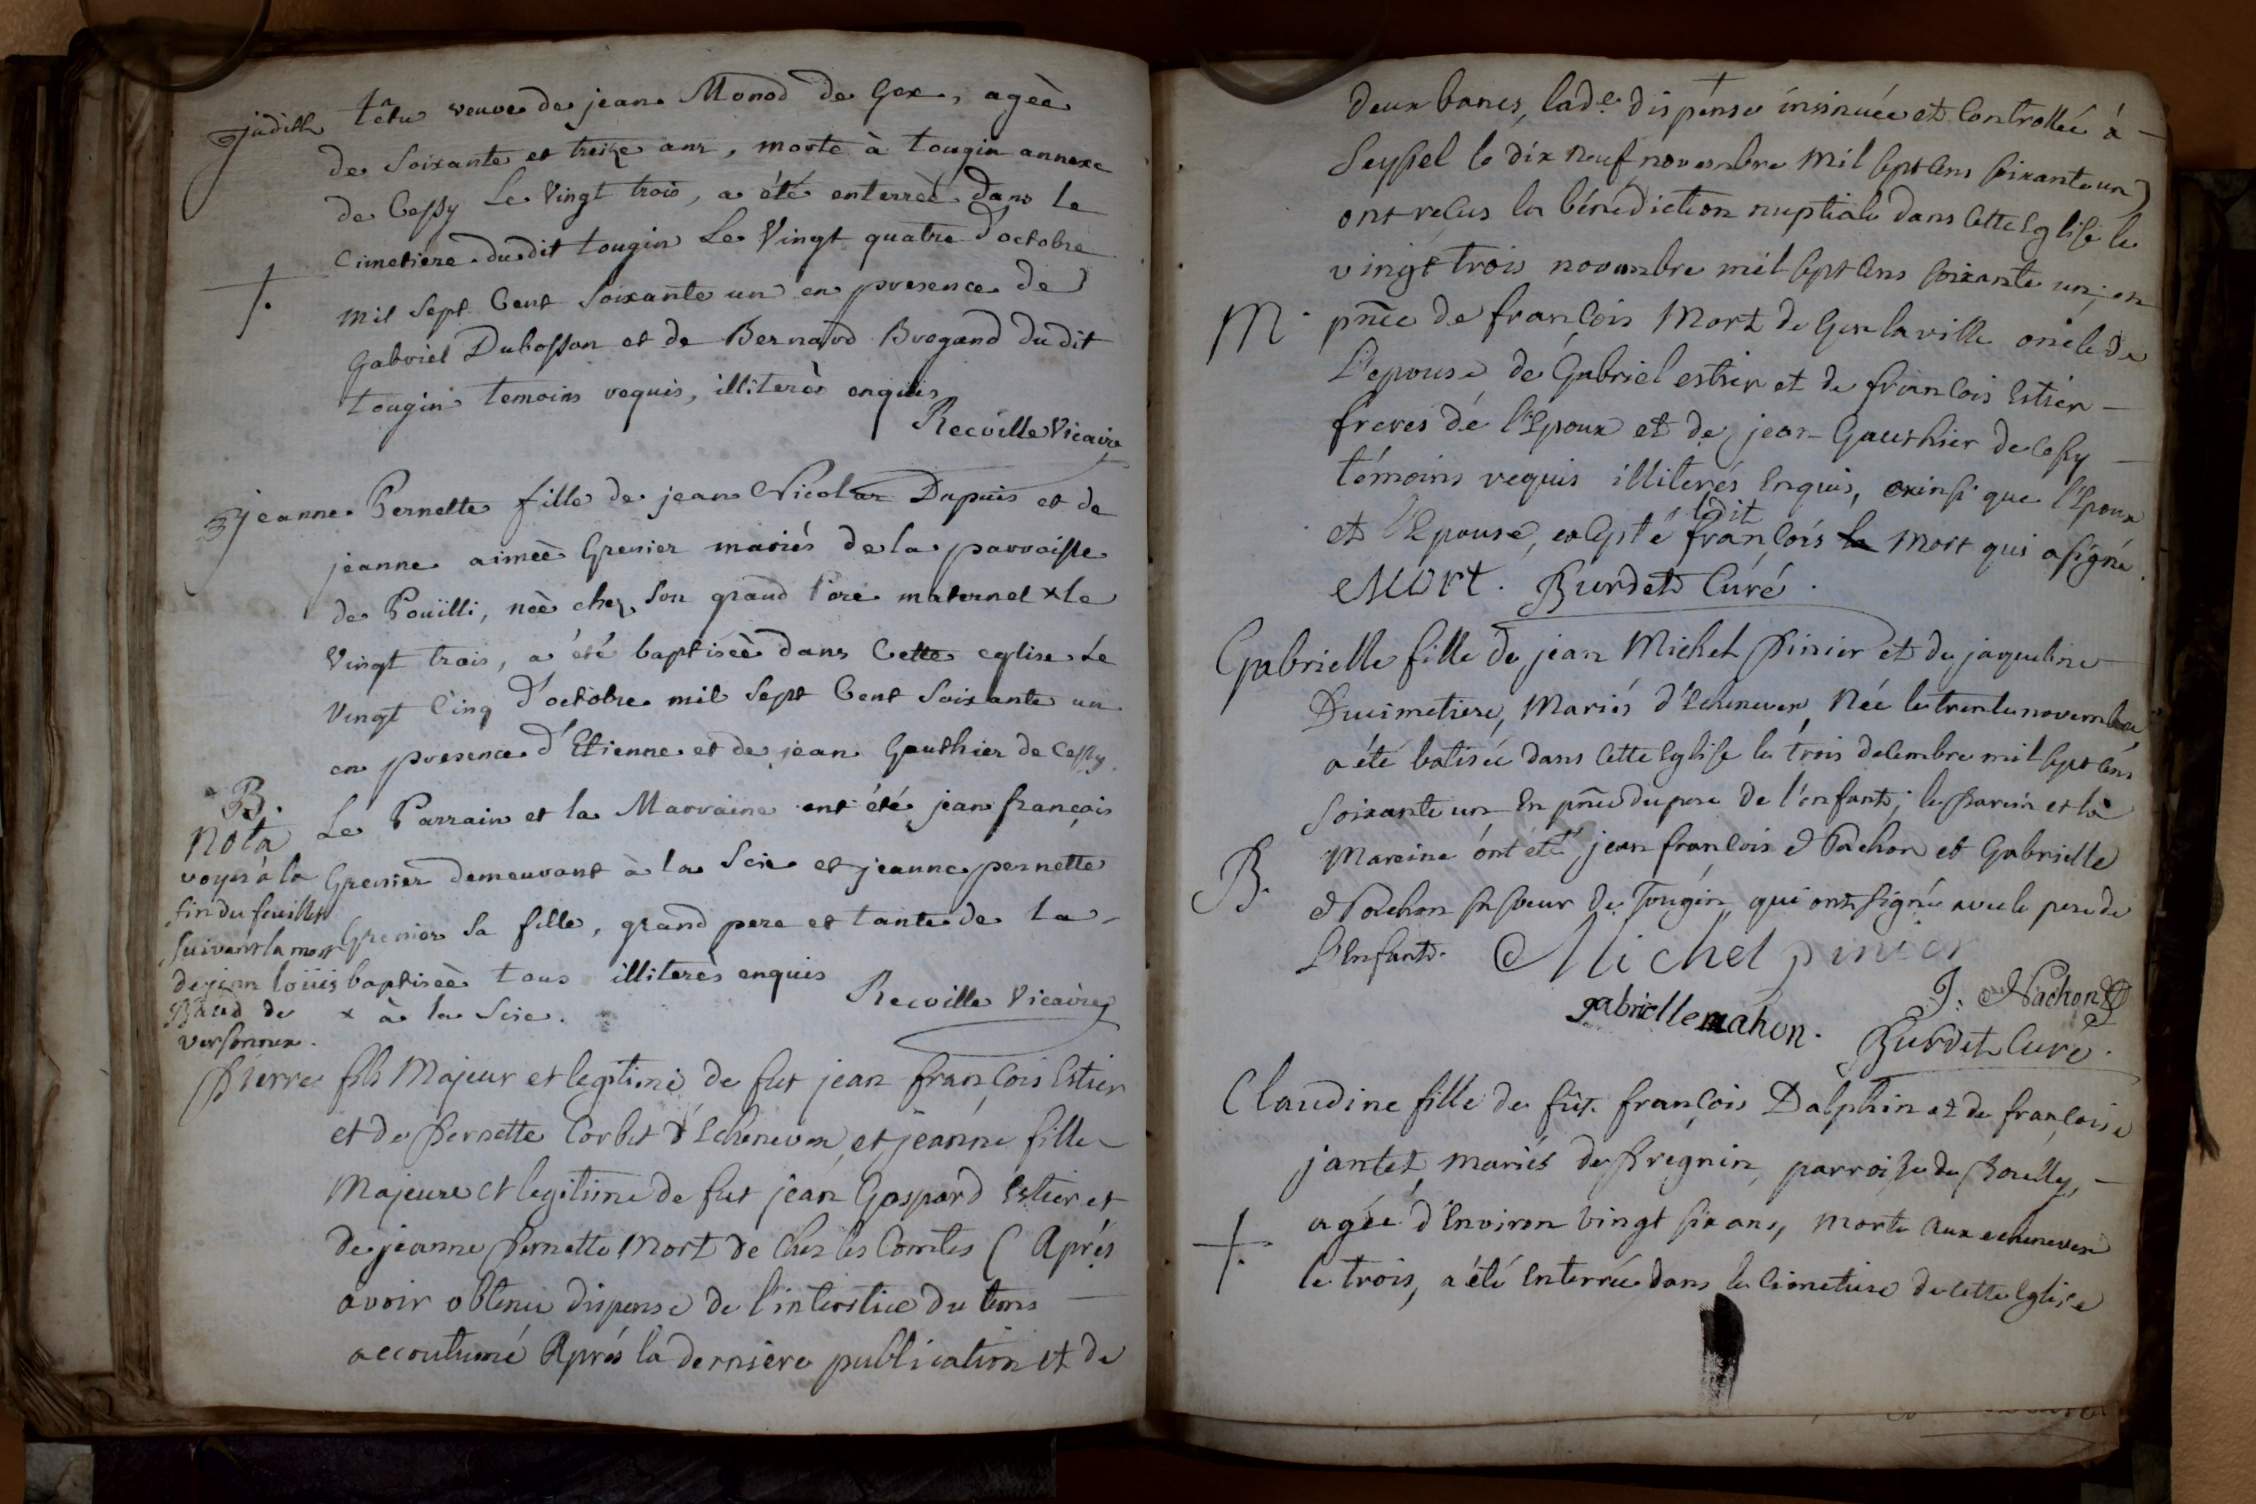 judith têtu veuve de jean Monod de Gex, ageè
de Soixante et treize ans, morte à tougin annexe
de Cessy Le Vingt trois, a été enterreè dans le
Cimetiere du dit tougin Le Vingt quatre d'octobre
+.
mil Sept Cent Soixante un en presence de
Gabriel Dubosson et de Bernard Brogand du dit
tougin temoins requis, illiterès enquis
Recville Vicaire
jeanne Pernette fille de jean Nicolas Dupuis et de
jeanne aimeè Grenier mariés de la parroisse
de Pouilli, neè chez Son grand Pere maternel x le
Vingt trois, a été baptiseè dans Cette eglise Le
Vingt Cinq d'octobre mil Sept Cent Soixante un
en presence d'Etienne et de jean Gauthier de Cessy.
B.
Le Parrain et la Marraine ont été jean françois
Grenier demeurant à la Scie et jeanne pernette
Grenier Sa fille, grand pere et tante de la
baptiseè tous illiterès enquis
Recville Vicaire
x à la Scie.
Nota
voyés à la
fin du feuillet
Suivant la mort
de jean loüis
Baud de
versonnex.
Pierre fils Majeur et legitime de fut jean françois Estier
et de Pernette Corbet d'Echenevex, et jeanne fille
Majeure et legitime de fut jean Gaspard Estier et
de jeanne Pernette Mort de Chez les Comtes ( Après
avoir obtenu dispense de l'interstice du tems
accoutumé Après la dernière publication et de
deux bancs, lad.e dispense insinuée et Controllée à
Seyssel le dix neuf novembre mil sept Cens soixante un)
ont reçus la bénédiction nuptiale dans Cette Eglise le
vingt trois novembre mil sept Cens soixante un; en
M.
pñce de françois Mort de Gex la ville oncle de
l'epouse de Gabriel estier et de françois Estier
freres de l'Epoux et de jean Gauthier de Cessy
témoins requis illiterés Enquis, ainsi que l'Epoux
et l'Epouse, excepté ledit françois la Mort qui a signé.
Mort. Burdet Curé.
Gabrielle fille de jean Michel Pinier et de jaqueline
Ducimetiere, Mariés d'Echenevex, Née le trente novembre
a été batisée dans Cette Eglise le trois decembre mil sept Cens
soixante un En pñce du pere de l'enfant; le Parein et la
B.
Mareine ont été jean françois Nachon et Gabrielle
Nachon sa soeur de Tougin, qui ont signé avec le pere de
l'Enfant.
Michel pinier
J. Nachon
gabrielle nahon.
Burdet Curé.
Claudine fille de fût françois Dalphin et de françoise
jantet, mariés de Pregnin, parroisse de Pouilly,
+.
agée d'Environ vingt six ans, morte aux echenevex
le trois, a été Enterrée dans le Cimetiere de cette Eglise